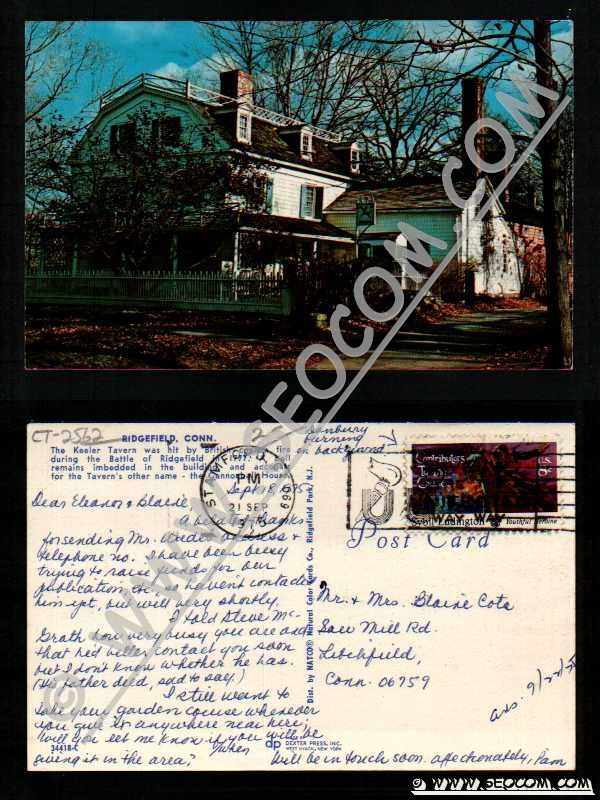 © WWW.SEOCOM.COM
CT-2562
RIDGEFIELD, CONN.
The Keeler Tavern was hit by British fire
during the Battle of Ridgefield in 1777. A ball
remains imbedded in the building and
for the Tavern's other name - the Cannonball House.
Danbury
burning
on background
STAMFORD
PM
21 SEP
1975
Contributors
To The
Cause
US
9c
Sybil Ludington Youthful Heroine
Post Card
Sept. 18, 1975
Dear Eleanor & Blaine,
A belated thanks
for sending Mr. address &
telephone no. I have been busy
trying to raise funds for our
publication, etc. & haven't contacted
him yet, but will very shortly.
I told Steve Mc-
Grath how very busy you are and
that he'll contact you soon
but I don't know whether he has.
(His father died, sad to say.)
I still want to
take your garden course whenever
you give it anywhere near here;
will you let me know if you will be
when
giving it in the area?
will be in touch soon. affectionately, Pam
Mr. & Mrs. Blaine Cote
Saw Mill Rd.
Litchfield,
Conn. 06759
ans. 9/22/75
Dist. by NATCO® Natural Color Cards Co., Ridgefield Park, N.J.
34418-C
dp
DEXTER PRESS, INC.
WEST NYACK, NEW YORK
© WWW.SEOCOM.COM
© WWW.SEOCOM.COM